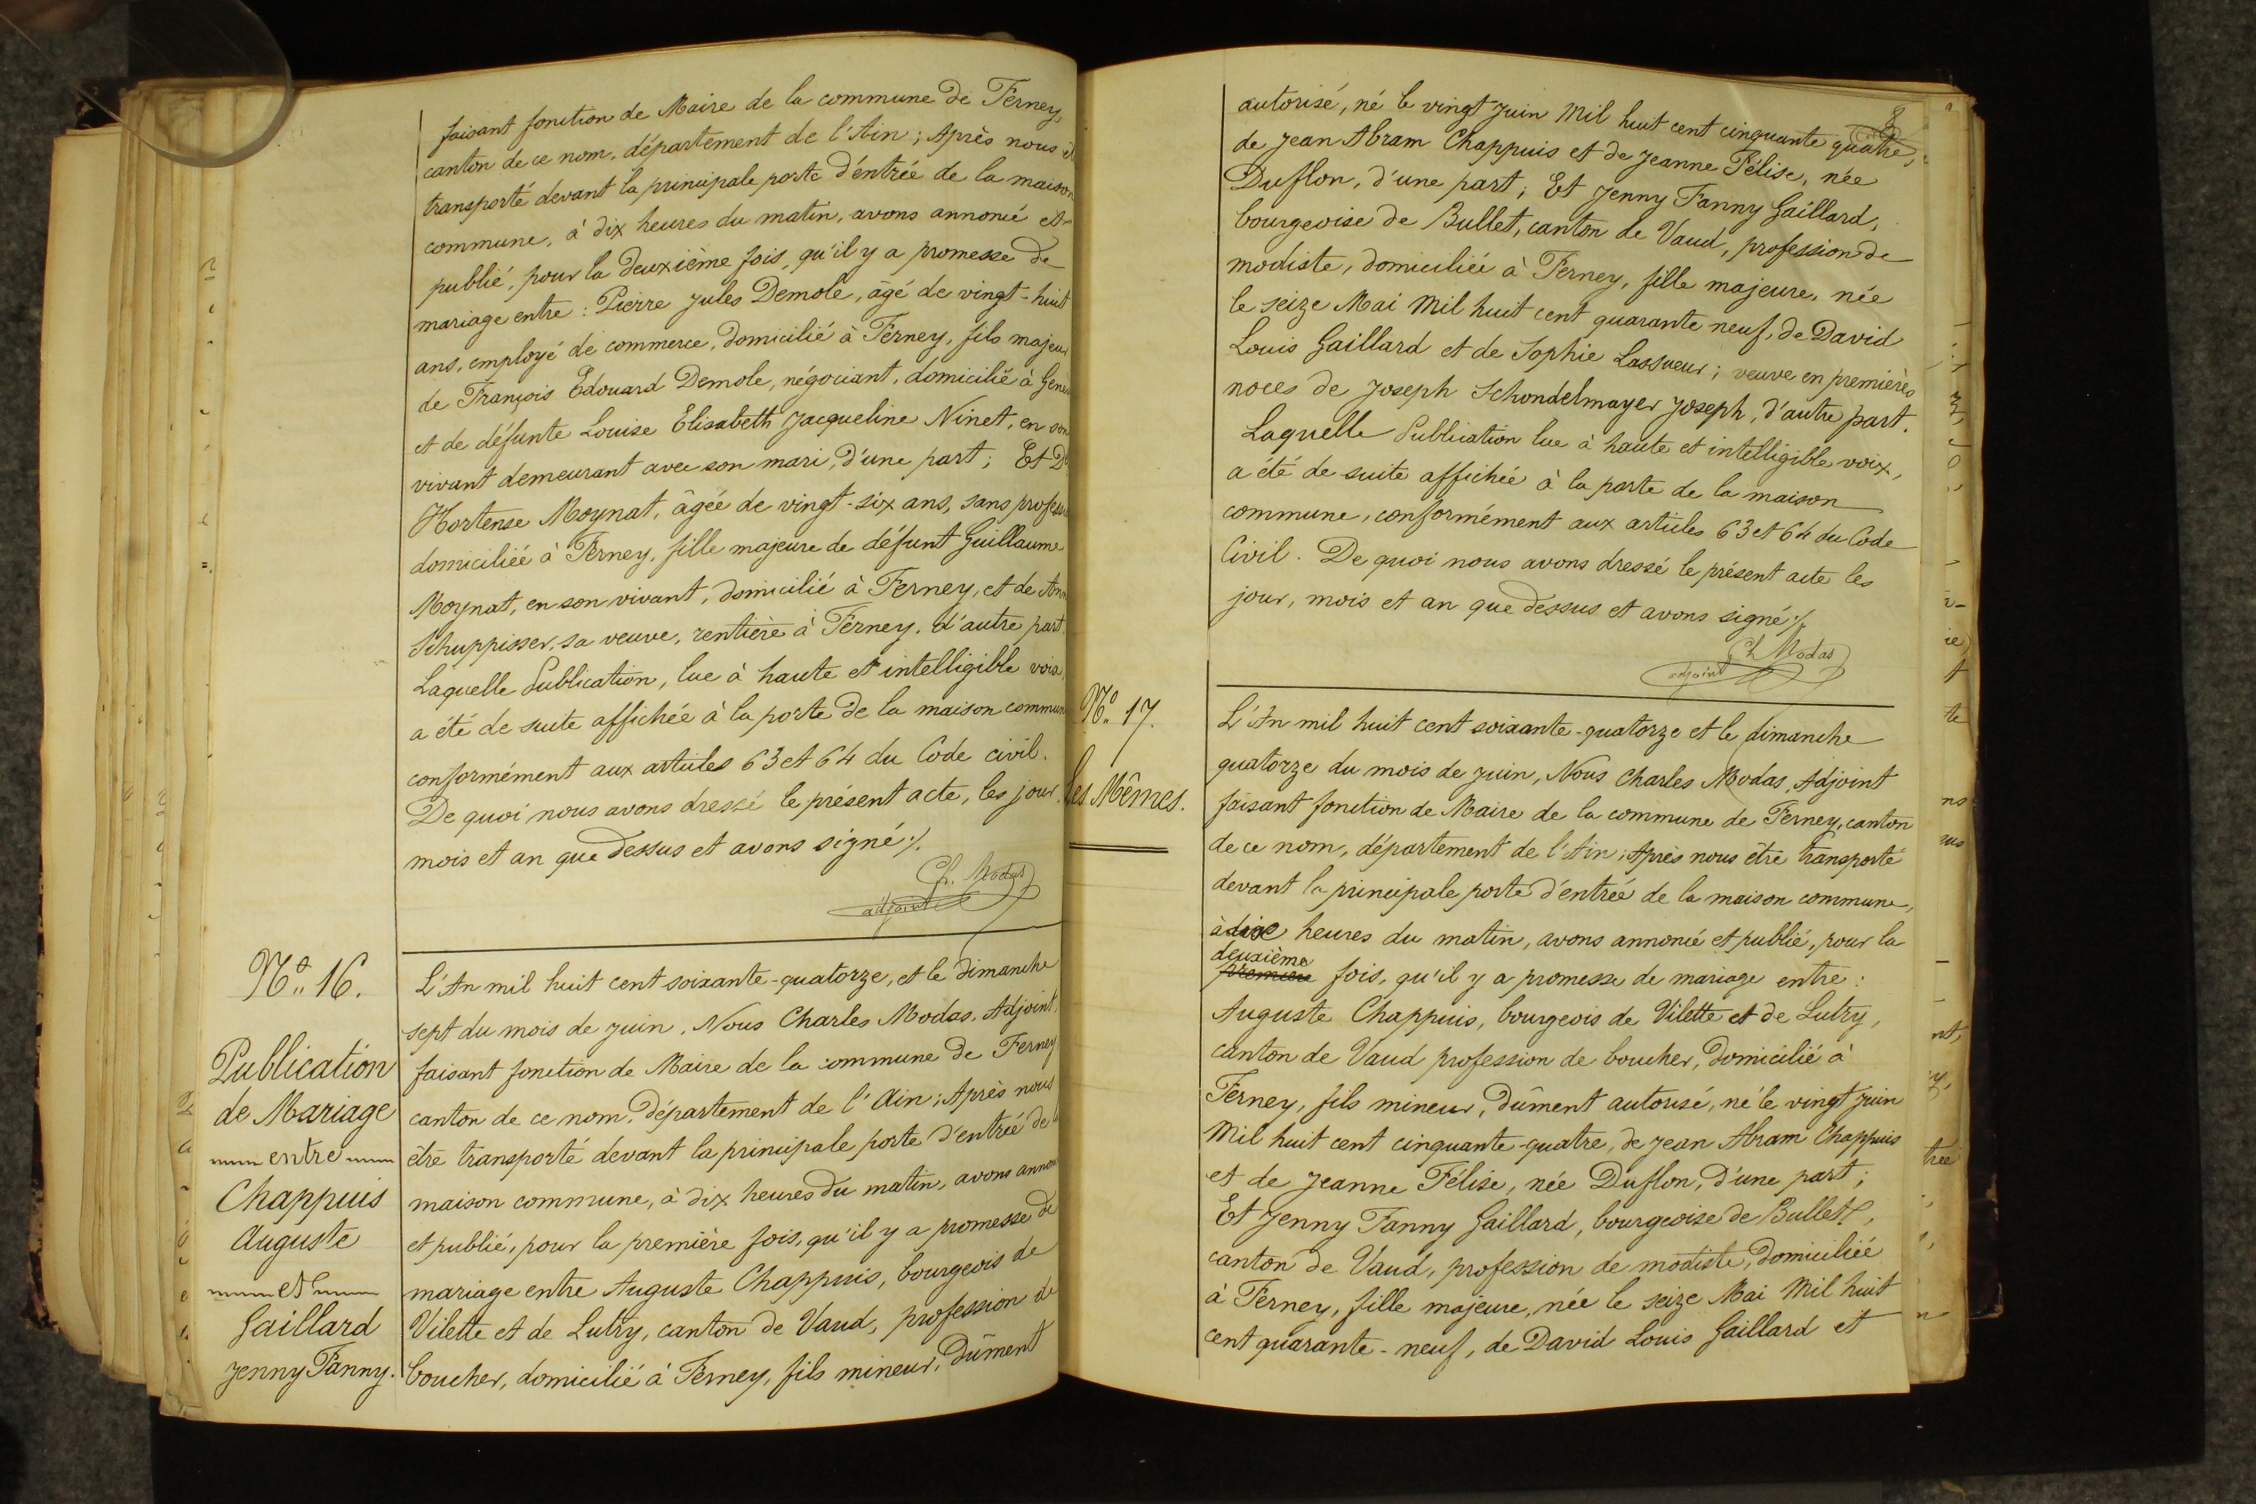 faisant fonction de Maire de la commune de Ferney,
canton de ce nom, département de l'Ain ; Après nous
transporté devant la principale porte d'entrée de la maison
commune, à dix heures du matin, avons annoncé et
publié, pour la deuxième fois, qu'il y a promesse de
mariage entre : Pierre Jules Demole, âgé de vingt-huit
ans, employé de commerce, domicilié à Ferney, fils majeur
de François Edouard Demole, négociant, domicilié à Genè
et de défunte Louise Elisabeth Jacqueline Ninet, en son
vivant demeurant avec son mari, d'une part ; Et D
Hortense Moynat, âgée de vingt-six ans, sans profess
domiciliée à Ferney, fille majeure de défunt Guillaume
Moynat, en son vivant, domicilié à Ferney, et de Ann
Schuppisser, sa veuve, rentière à Ferney, d'autre part.
Laquelle Publication, lue à haute et intelligible voix,
a été de suite affichée à la porte de la maison commun
conformément aux articles 63 et 64 du Code civil.
De quoi nous avons dressé le présent acte, les jour,
mois et an que dessus et avons signé ./.
Ch. Modas
adjoint
N° 16.
Publication
de Mariage
entre
Chappuis
Auguste
et
Gaillard
Jenny Fanny.
L'An mil huit cent soixante-quatorze, et le dimanche
sept du mois de juin, Nous Charles Modas, Adjoint,
faisant fonction de Maire de la commune de Ferney
canton de ce nom, département de l'Ain ; Après nous
être transporté devant la principale porte d'entrée de l
maison commune, à dix heures du matin, avons annon
et publié, pour la première fois, qu'il y a promesse de
mariage entre Auguste Chappuis, bourgeois de
Vilette et de Lutry, canton de Vaud, profession de
boucher, domicilié à Ferney, fils mineur, dûment
8
autorisé, né le vingt juin Mil huit cent cinquante quatre,
de Jean Abram Chappuis et de Jeanne Félise, née
Duflon, d'une part ; Et Jenny Fanny Gaillard,
bourgeoise de Bullet, canton de Vaud, profession de
modiste, domiciliée à Ferney, fille majeure, née
le seize Mai Mil huit cent quarante neuf, de David
Louis Gaillard et de Sophie Lassueur ; veuve en premières
noces de Joseph Schondelmayer Joseph, d'autre part.
Laquelle Publication lue à haute et intelligible voix,
a été de suite affichée à la porte de la maison
commune, conformément aux articles 63 et 64 du Code
Civil. De quoi nous avons dressé le présent acte les
jour, mois et an que dessus et avons signé ./.
Ch Modas
adjoint
N° 17.
Les Mêmes.
L'An mil huit cent soixante-quatorze et le dimanche
quatorze du mois de juin, Nous Charles Modas, Adjoint
faisant fonction de Maire de la commune de Ferney, canton
de ce nom, département de l'Ain ; Après nous être transporté
devant la principale porte d'entrée de la maison commune,
à dix heures du matin, avons annoncé et publié, pour la
deuxième
première fois, qu'il y a promesse de mariage entre :
Auguste Chappuis, bourgeois de Vilette et de Lutry,
canton de Vaud profession de boucher, domicilié à
Ferney, fils mineur, dûment autorisé, né le vingt juin
Mil huit cent cinquante-quatre, de Jean Abram Chappuis
et de Jeanne Félise, née Duflon, d'une part ;
Et Jenny Fanny Gaillard, bourgeoise de Bullet,
canton de Vaud, profession de modiste, domiciliée
à Ferney, fille majeure, née le seize Mai Mil huit
cent quarante-neuf, de David Louis Gaillard et